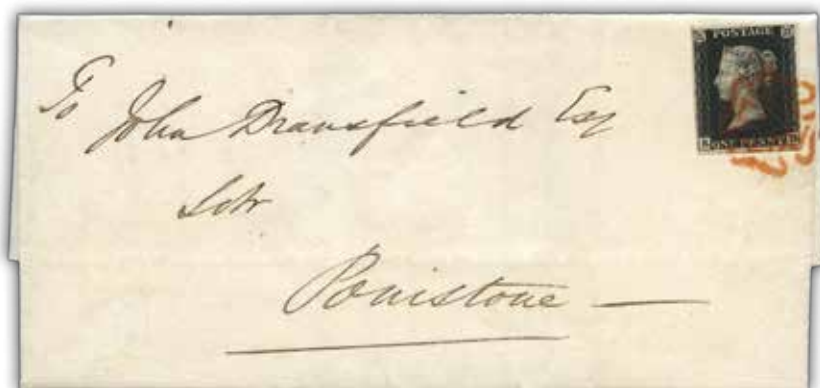 POSTAGE
ONE PENNY
To John Dransfield Esq
Solr
Penistone